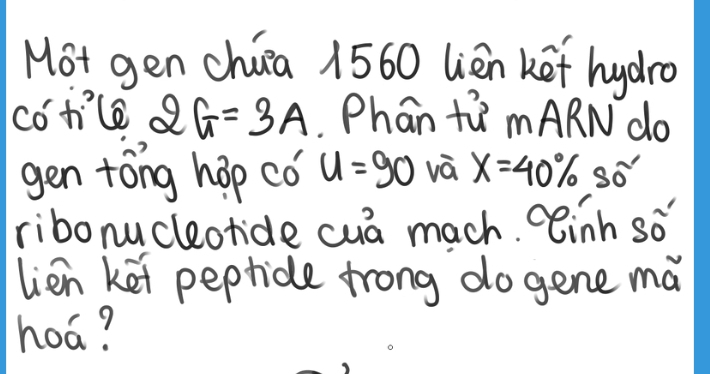 Một gen chứa 1560 liên kết hydro
có tỉ lệ 2G=3A. Phân tử mARN do
gen tổng hợp có U=90 và X=40% số
ribonucleotide của mạch. Tính số
liên kết peptide trong do gene mã
hoá?